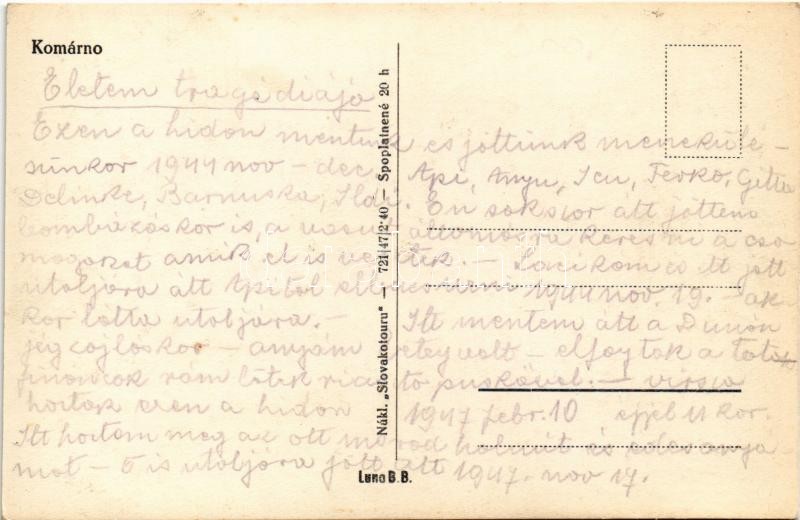 Komárno
Életem tragédiája
Ezen a hidon mentünk és jöttünk menekülé-
sünkor 1944 nov - dec Api, Anyu, Icu, Ferkó, Gitta
Barnuska, én sokszor átt jöttem
bombázáskor is, a vasút állomásra keresni a cso
magokat amik el is vesztek. - Lacikám is itt jött
utoljára átt Apitól elbúcsúzni 1944 nov. 19. - ak-
kor látta utoljára. - Itt mentem átt a Dunán
jégzajláskor - anyám beteg volt - elfogtak a tótok
fináncok rám lőttek riasztó puskával. - vissza
hoztak ezen a hidon 1947 febr. 10 éjjel 11 kor.
Itt hoztam meg az ott maradt holmit és édesanyá
mat - Ő is utoljára jött átt 1947. nov 17.
Nákl. „Slovakotouru" — 721|47|2·40 — Spoplatnené 20 h
Luna B. B.